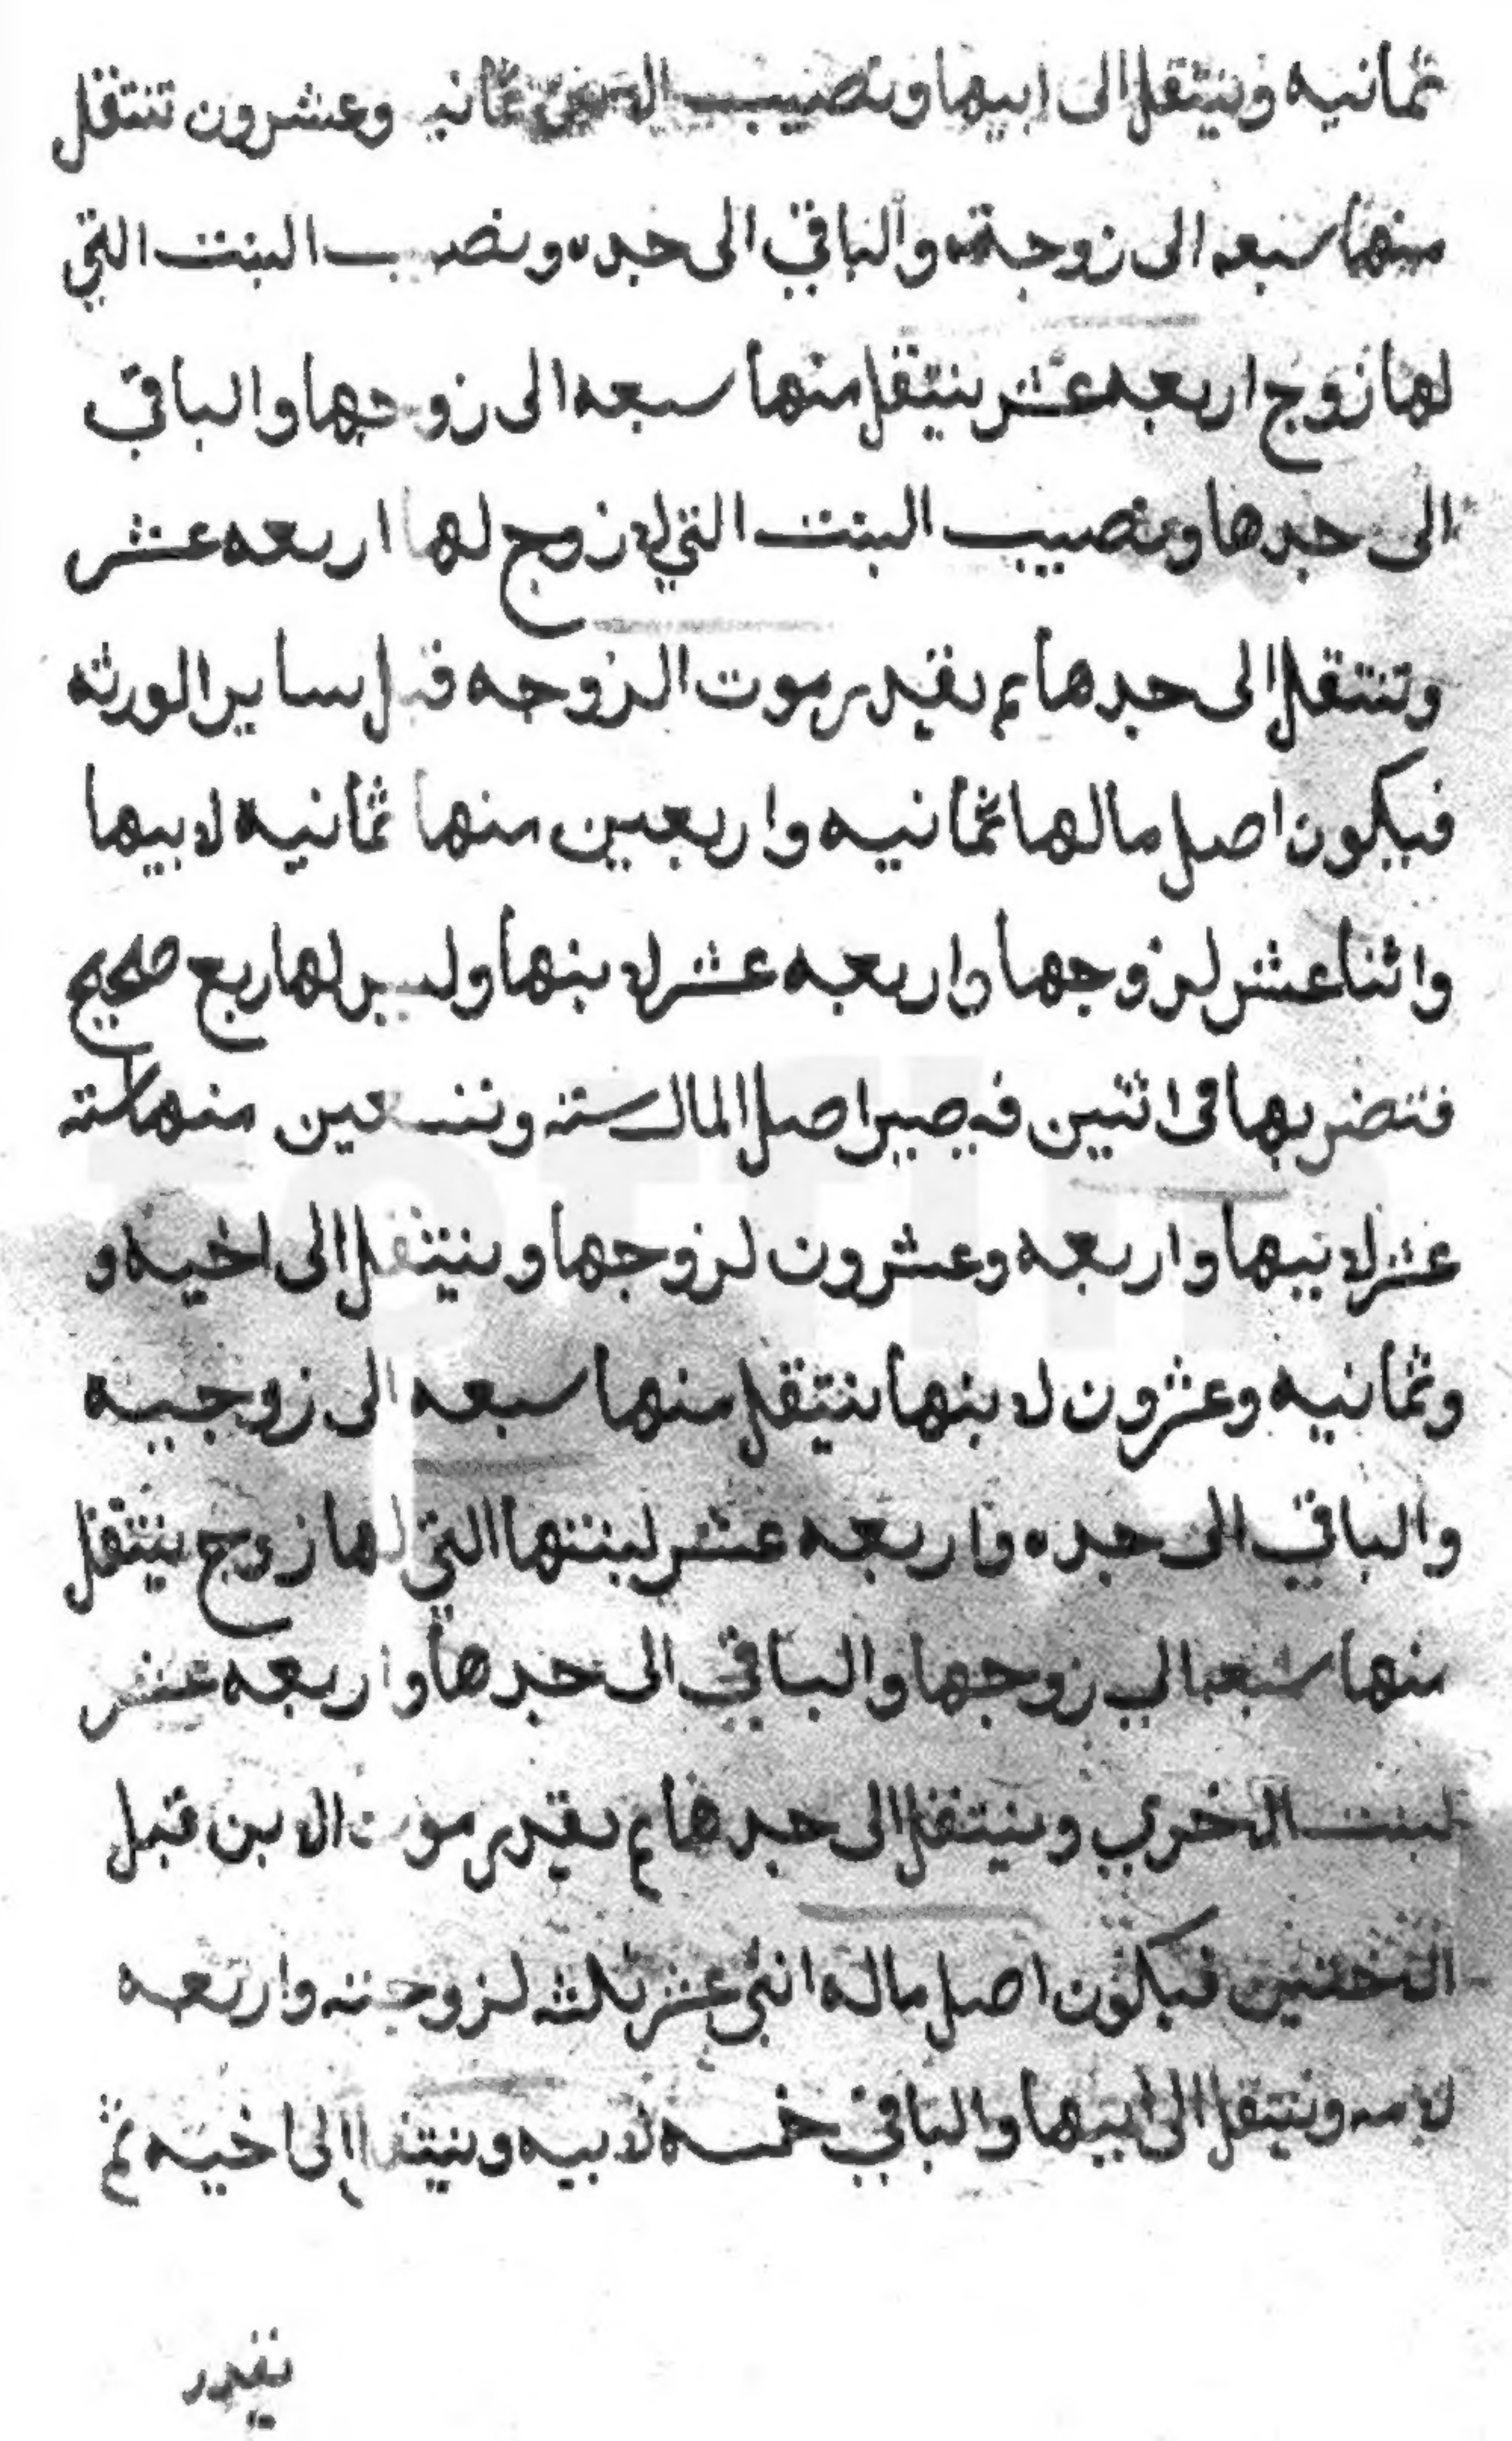 ثمانيه وينتقل الى ابيها ونصيب ثمانيه وعشرون تنتقل
منها سبعه الى زوجته والباقي الى جده ونصيب البنت التي
لها زوج اربعه عشر ينتقل منها سبعه الى زوجها والباقي
الى جدها ونصيب البنت التي لا زوج لها اربعه عشر
وتنتقل الى جدها ثم نقدر موت الزوجه قبل ساير الورثه
فيكون اصل مالها ثمانيه واربعين منها ثمانيه لابيها
واثنا عشر لزوجها واربعه عشر لابنها وليس لها ربع صحيح
فتضربها في اثنين فيصير اصل المال سته وتسعين منها سته
عشر لابيها واربعه وعشرون لزوجها وينتقل الى اخيه و
وثمانيه وعشرون لابنها ينتقل منها سبعه الى زوجيه
والباقي الى جده واربعه عشر لبنتها التي لها زوج ينتقل
منها سبعه الي زوجها والباقي الى جدها واربعه عشر
لبنت الاخري وينتقل الى جدها ثم نقدر موت الابن قبل
الاختين فيكون اصل ماله اثني عشر ثلثه لزوجته واربعه
لامه وينتقل الى ابيها والباقي خمسه لابيه وينتقل الى اخيه ثم
نقدر